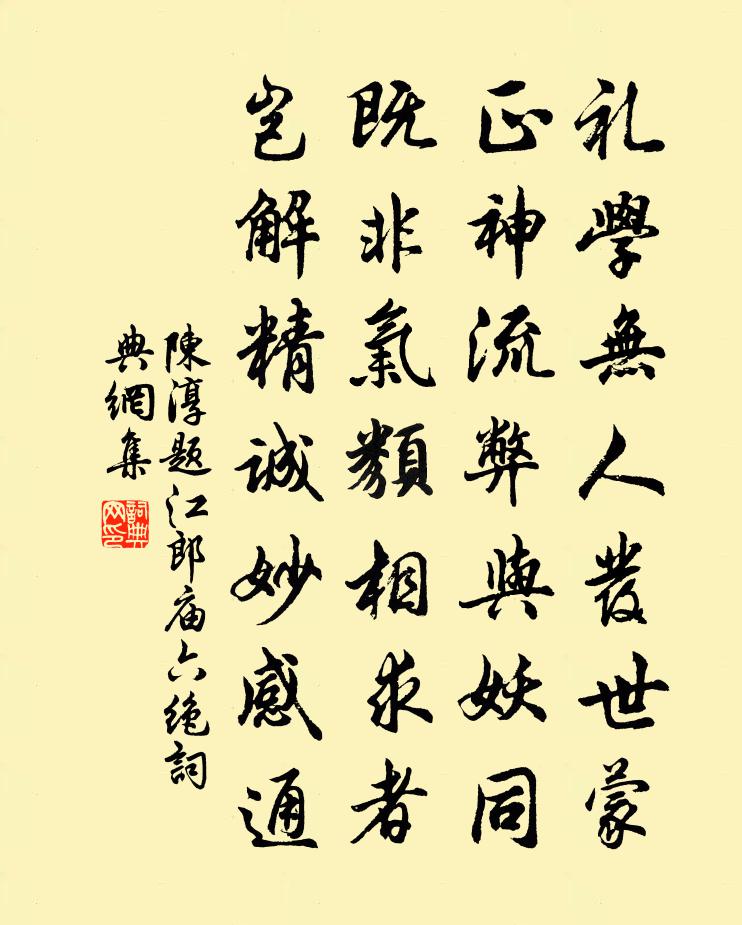 礼學無人發世蒙
正神流弊與妖同
既非氣類相求者
豈解精誠妙感通
陳淳題江郎庙六绝詞
典網集
詞典网印